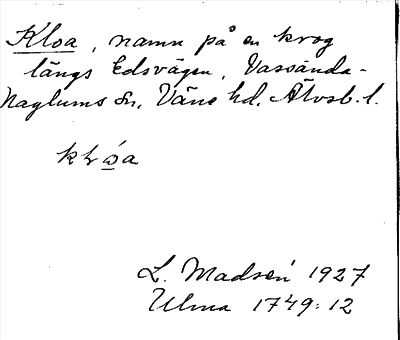 Kloa, namn på en krog
längs Edsvägen, Vassända-
Naglums sn, Väne hd, Älvsb. l.
L. Madsén 1927
Ulma 1749:12